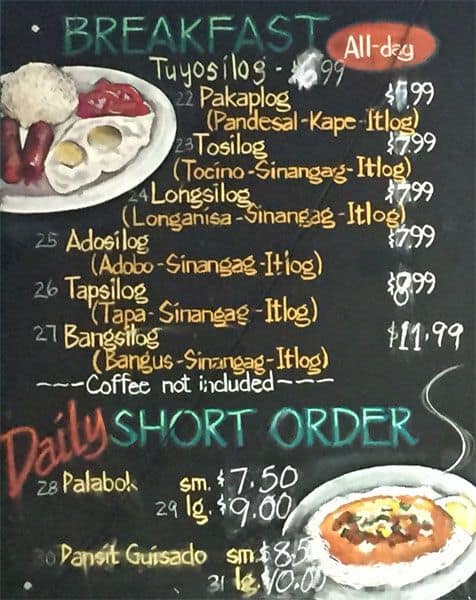 BREAKFAST All-day
Tuyosilog - $6.99
22 Pakaplog $ .99
(Pandesal-Kape-Itlog)
23 Tosilog $7.99
(Tocino-Sinangag-Itlog)
24 Longsilog $7.99
(Longanisa-Sinangag-Itlog)
25 Adosilog $7.99
(Adobo-Sinangag-Itlog)
26 Tapsilog $8.99
(Tapa-Sinangag-Itlog)
27 Bangsilog $11.99
(Bangus-Sinangag-Itlog)
~~~Coffee not included~~~
Daily SHORT ORDER
28 Palabok sm. $7.50
29 lg. $9.00
30 Pansit Guisado sm. $8.5
31 lg. $10.00